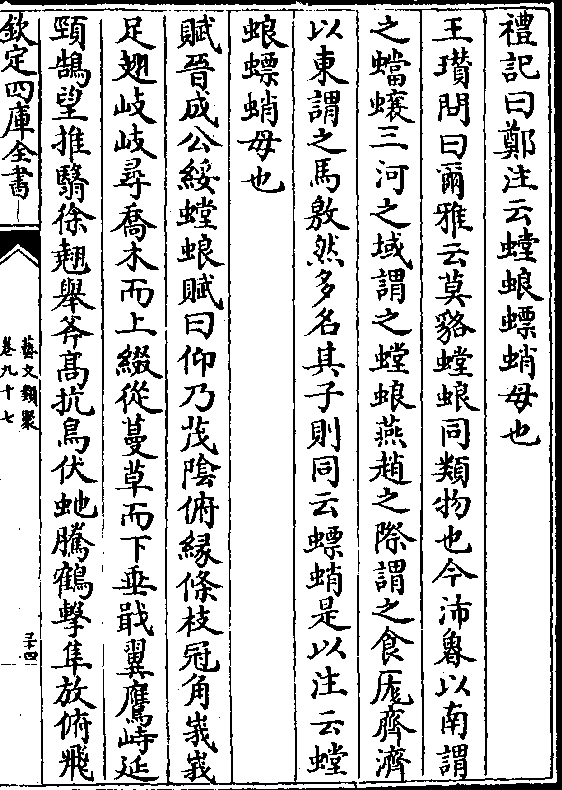 禮記曰鄭注云螳蜋螵蛸母也
王瓚問曰爾雅云莫貉螳蜋同類物也今沛魯以南謂
之蟷蠰三河之域謂之螳蜋燕趙之際謂之食厖齊濟
以東謂之馬敫然多名其子則同云螵蛸是以注云螳
蜋螵蛸母也
賦晉成公綏螳蜋賦曰仰乃茂陰俯緣條枝冠角峩峩
足翅岐岐尋喬木而上綴從蔓草而下垂戢翼鷹峙延
頸鵠望推翳徐翹舉斧高抗鳥伏虵騰鶴擊隼放俯飛
欽定四庫全書
藝文類聚
卷九十七
三十四